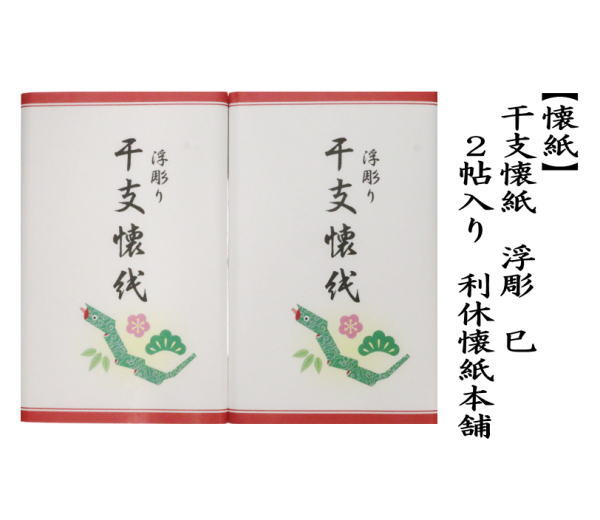 【懐紙】
干支懐紙 浮彫 巳
２帖入り 利休懐紙本舗
浮彫り
干支懐紙
浮彫り
干支懐紙